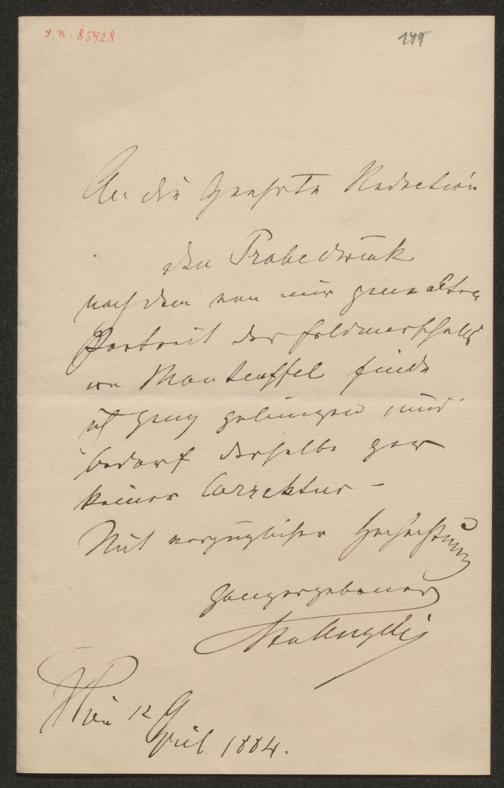 I.N. 85928
149
An die geehrte Redaction
Den Probedruck
nach dem von mir gemalten
Portrait des Feldmarschalls
von Manteuffel finde
ich ganz gelungen und
bedarf derselbe gar
keiner Correktur –
Mit vorzüglicher Hochachtung
ganz ergebener
HvAngeli
Wien 12 April 1884.